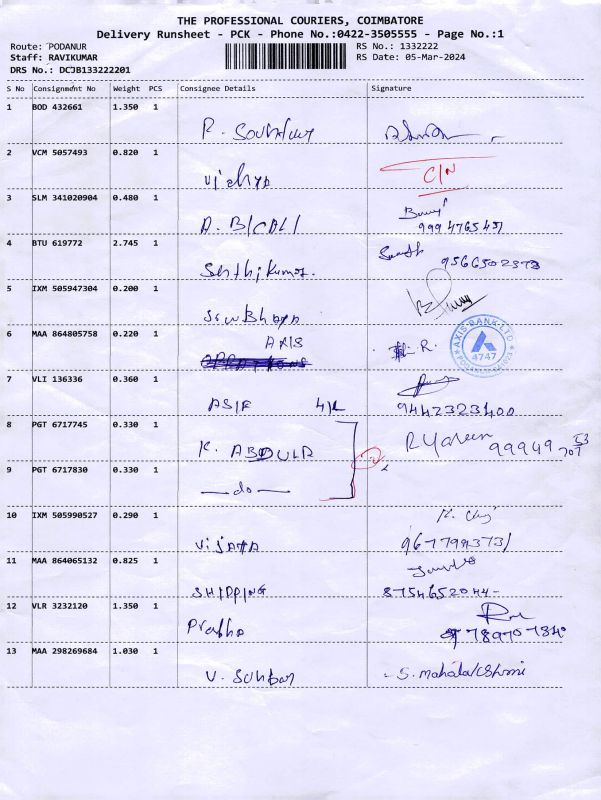 THE PROFESSIONAL COURIERS, COIMBATORE
Delivery Runsheet - PCK - Phone No.:0422-3505555 - Page No.:1
Route: PODANUR
RS No.: 1332222
Staff: RAVIKUMAR
RS Date: 05-Mar-2024
DRS No.: DCJB133222201
S No Consignment No Weight PCS Consignee Details Signature
1 BOD 432661 1.350 1
2 VCM 5057493 0.820 1 Vidhya C/N
3 SLM 341020904 0.480 1
4 BTU 619772 2.745 1 Senthikumar. 9566502373
5 IXM 505947304 0.200 1
6 MAA 864805758 0.220 1 AXIS R.
AXIS BANK LTD
4747
7 VLI 136336 0.360 1 ASIF 9442323400
8 PGT 6717745 0.330 1 K. ABDULA
9 PGT 6717830 0.330 1 —do—
10 IXM 505990527 0.290 1 Vijaya
11 MAA 864065132 0.825 1 SHIPPING 8754652044-
12 VLR 3232120 1.350 1 Prabha
13 MAA 298269684 1.030 1 - S. Mahalakshmi